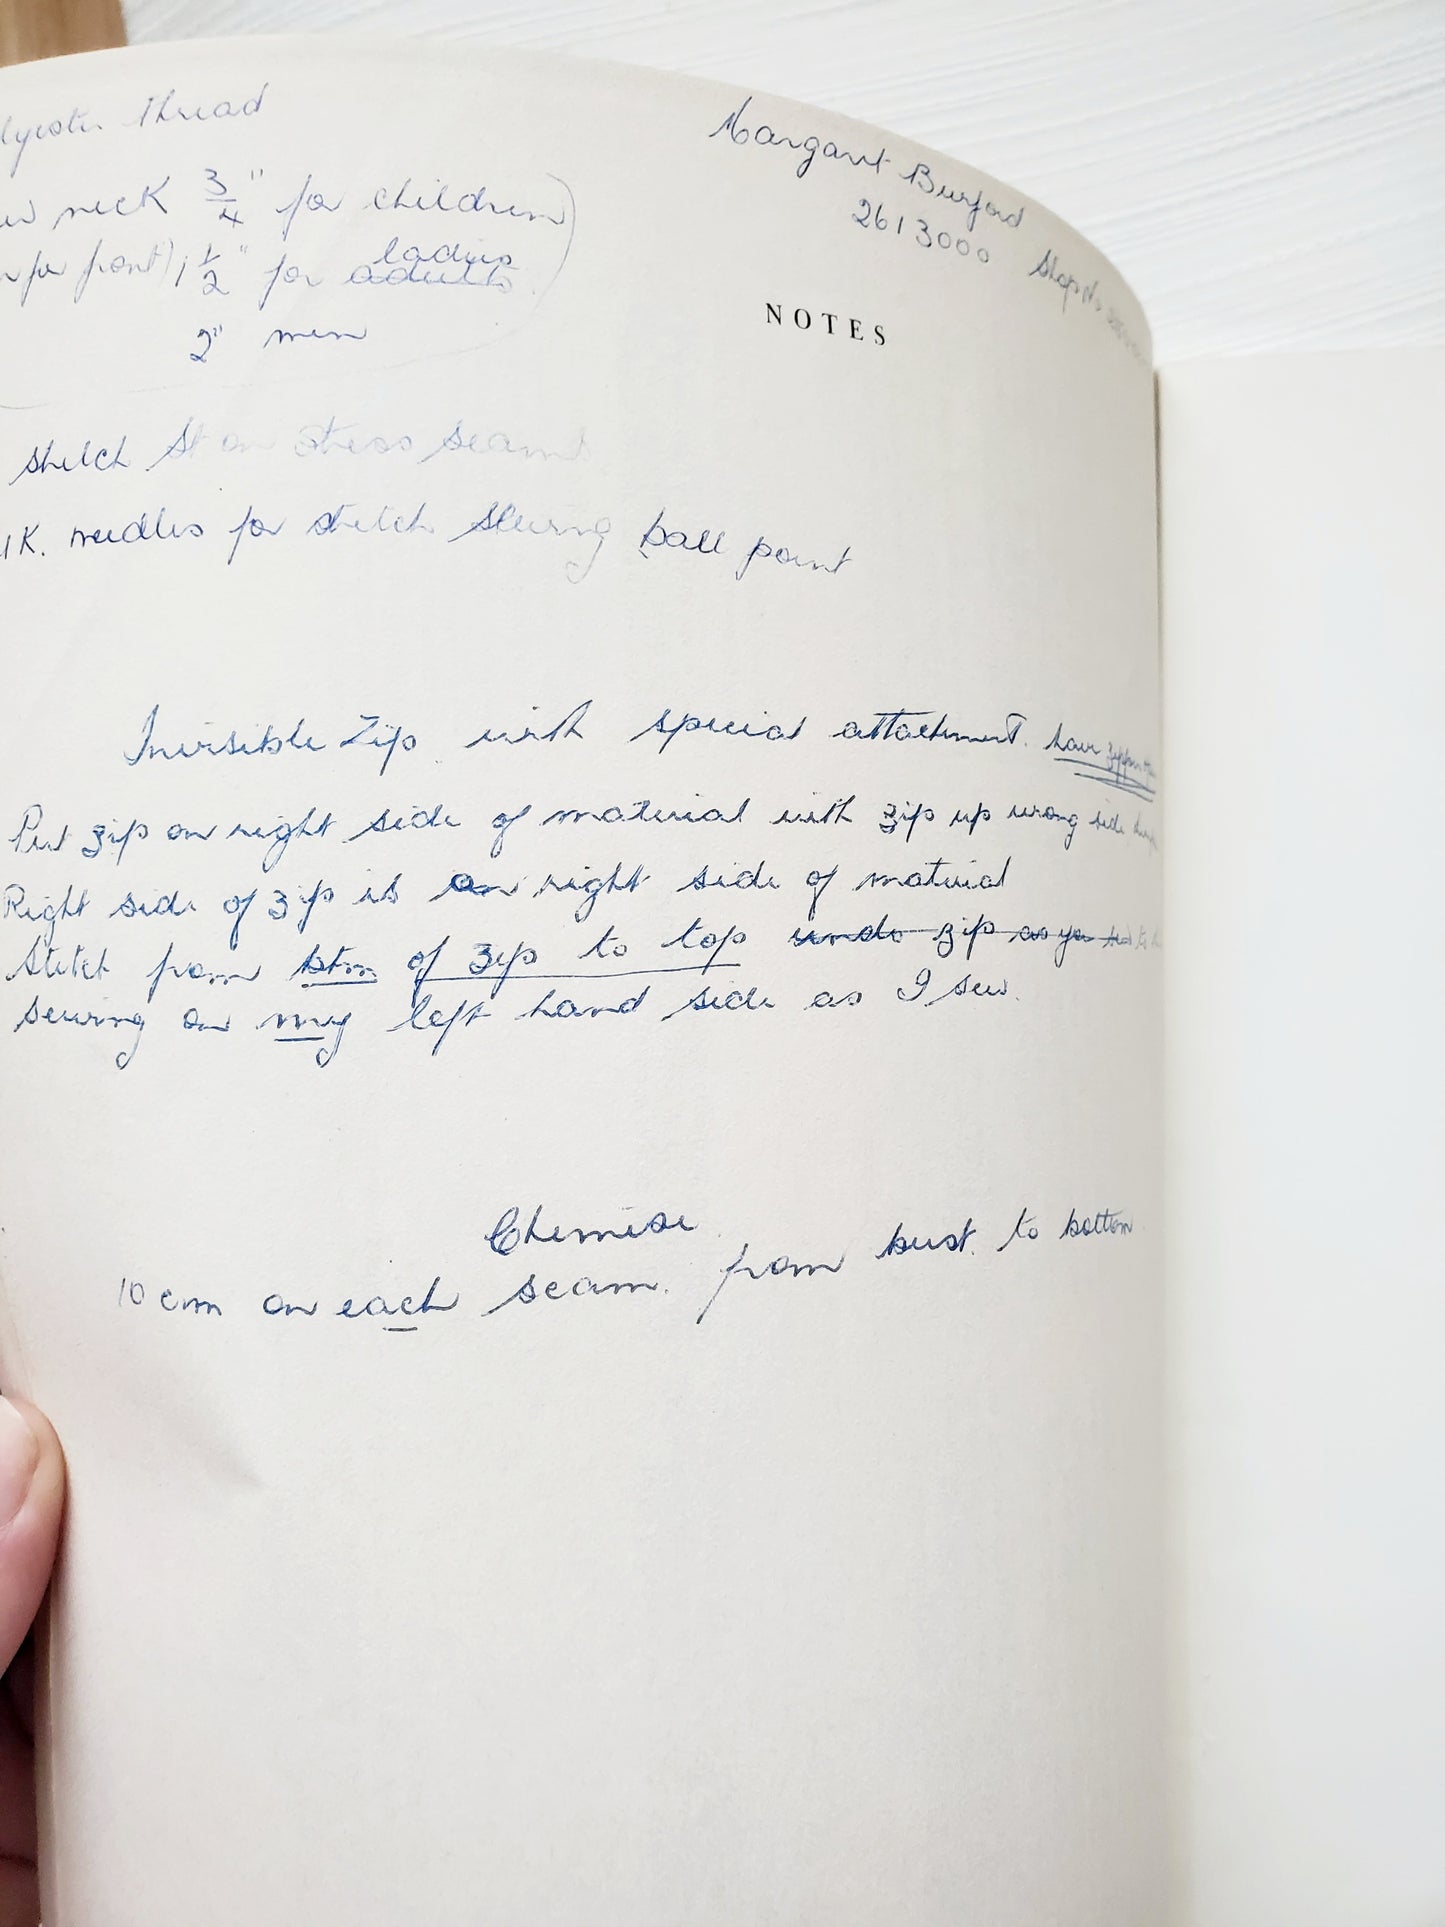 Thread
Margaret Burford
2613000
neck 3/4" for children)
front), 1/2" for adults ladies
2" men
NOTES
stretch st on stress seams
needles for stretch sewing ball point
Invisible Zip with special attachment. have
Put zip on right side of material with zip up wrong side
Right side of zip is on right side of material
Stitch from btm of zip to top undo zip as you
sewing on my left hand side as I sew.
Chemise
10 cm on each seam. from bust to bottom